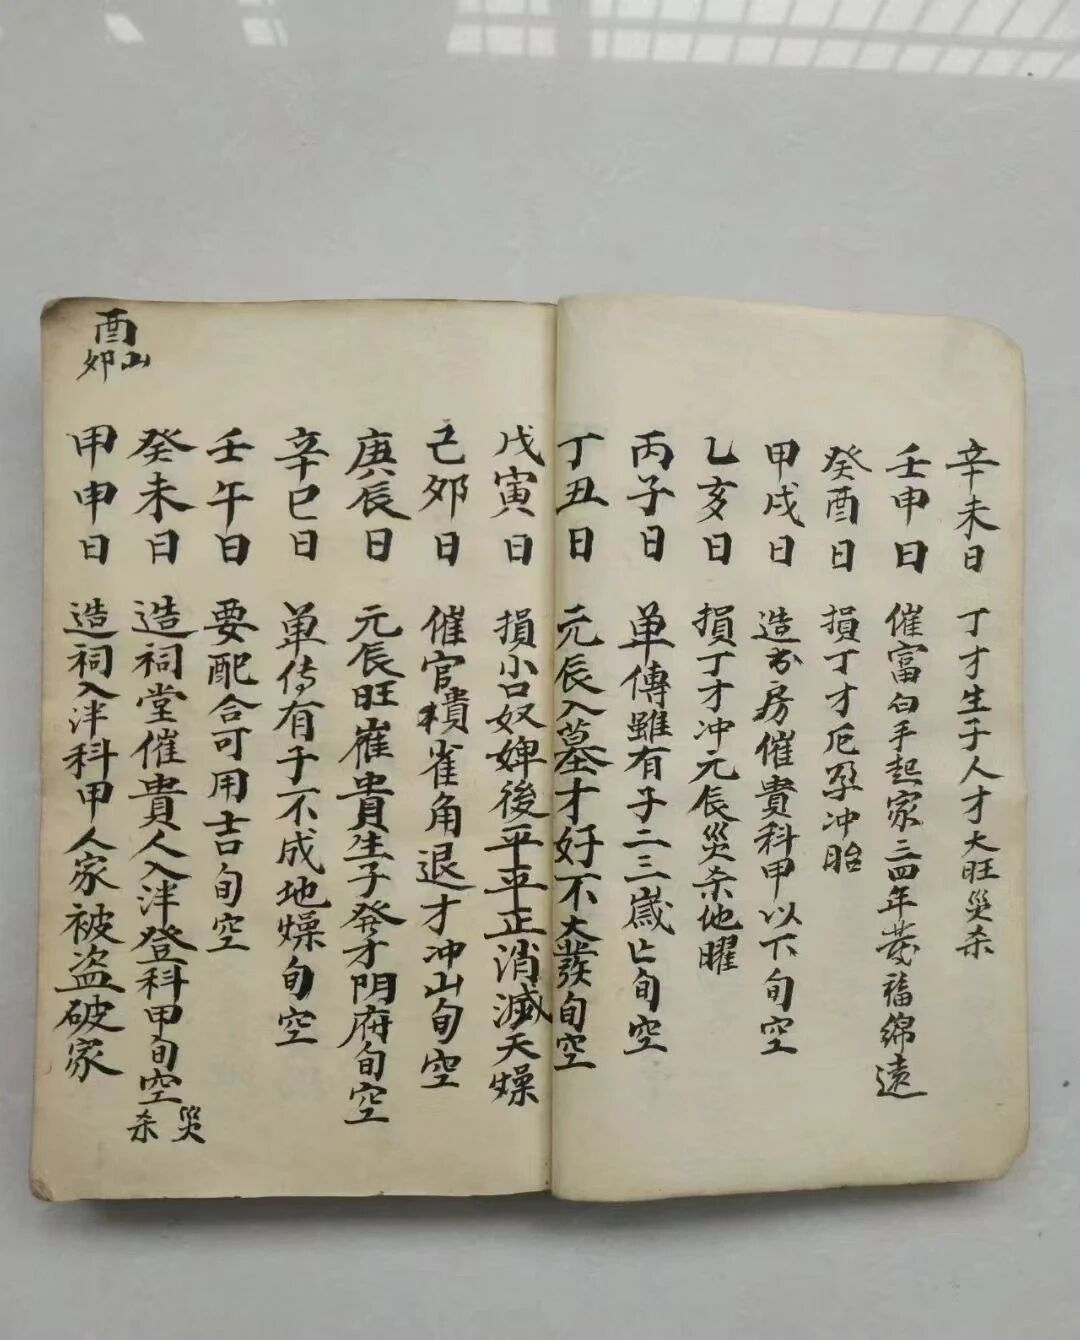 辛未日 丁才生子人才大旺災杀
壬申日 催富白手起家三四年發福綿遠
癸酉日 損丁才厄孕冲胎
甲戌日 造书房催貴科甲以下旬空
乙亥日 損丁才冲元辰災杀地曜
丙子日 单傳雖有子二三歲亡旬空
丁丑日 元辰入墓才好不大發旬空
戊寅日 損小口奴婢後平平正消滅天燥
己夘日 催官横雀角退才冲山旬空
庚辰日 元辰旺崔貴生子發才阴府旬空
辛巳日 单传有子不成地燥旬空
壬午日 要配合可用吉旬空
癸未日 造祠堂催貴人入泮登科甲旬空災杀
甲申日 造祠入泮科甲人家被盗破家
酉山
夘